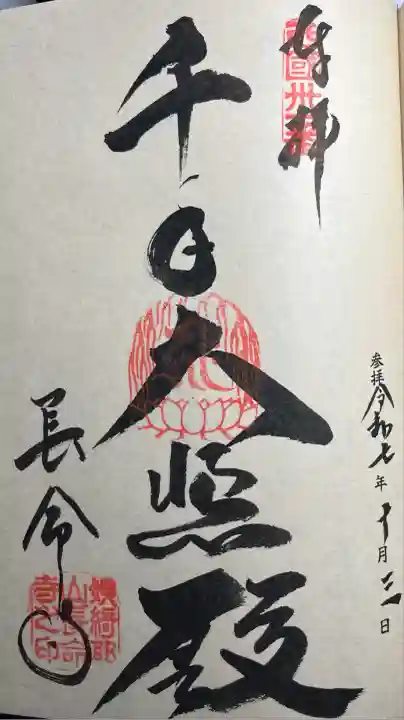 奉拝
西国卅一番
千手大悲殿
参拝令和七年十月三日
長命寺